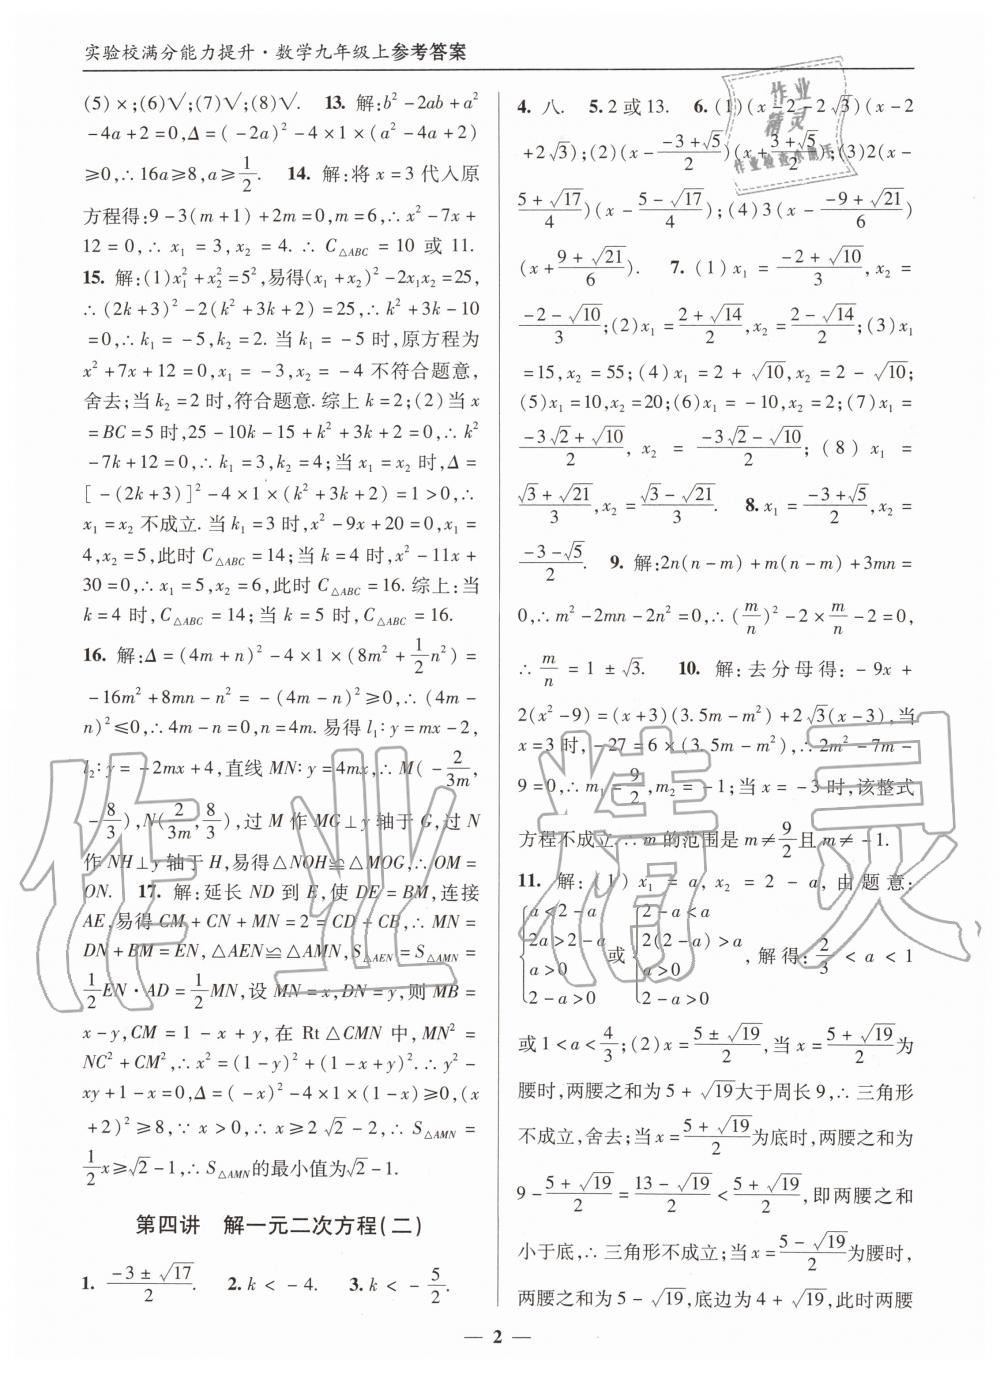 实验校满分能力提升·数学九年级上参考答案
(5)×;(6)√;(7)√;(8)√. 13. 解:b²-2ab+a²
-4a+2=0,Δ=(-2a)²-4×1×(a²-4a+2)
≥0,∴16a≥8,a≥1/2. 14. 解:将x=3代入原
方程得:9-3(m+1)+2m=0,m=6,∴x²-7x+
12=0,∴ x₁=3,x₂=4. ∴ C△ABC=10 或 11.
15. 解:(1)x₁²+x₂²=5²,易得(x₁+x₂)²-2x₁x₂=25,
∴(2k+3)²-2(k²+3k+2)=25,∴k²+3k-10
=0,∴k₁=-5,k₂=2. 当 k₁=-5 时,原方程为
x²+7x+12=0,x₁=-3,x₂=-4 不符合题意,
舍去;当k₂=2时,符合题意.综上k=2;(2)当x
=BC=5时,25-10k-15+k²+3k+2=0,∴k²
-7k+12=0,∴k₁=3,k₂=4;当x₁=x₂时,Δ=
[-(2k+3)]²-4×1×(k²+3k+2)=1>0,∴
x₁=x₂ 不成立. 当 k₁=3 时,x²-9x+20=0,x₁=
4,x₂=5,此时 C△ABC=14;当 k=4 时,x²-11x+
30=0,∴x₁=5,x₂=6,此时 C△ABC=16. 综上:当
k=4 时,C△ABC=14;当 k=5 时,C△ABC=16.
16. 解:Δ=(4m+n)²-4×1×(8m²+1/2n²)=
-16m²+8mn-n²=-(4m-n)²≥0,∴(4m-
n)²≤0,∴4m-n=0,n=4m. 易得 l₁:y=mx-2,
l₂:y=-2mx+4,直线 MN:y=4mx,∴M(-2/3m,
-8/3),N(2/3m,8/3),过 M 作 MG⊥y 轴于 G,过 N
作 NH⊥y 轴于 H,易得△NOH≌△MOG,∴OM=
ON. 17. 解:延长 ND 到 E,使 DE=BM,连接
AE,易得 CM+CN+MN=2=CD+CB,∴MN=
DN+BM=EN,△AEN≌△AMN,S△AEN=S△AMN=
1/2EN·AD=1/2MN,设 MN=x,DN=y,则 MB=
x-y,CM=1-x+y,在 Rt△CMN 中,MN²=
NC²+CM²,∴x²=(1-y)²+(1-x+y)².∴y²-
xy+1-x=0,Δ=(-x)²-4×1×(1-x)≥0,(x
+2)²≥8,∵x>0,∴x≥2√2-2,∴S△AMN=
1/2x≥√2-1,∴S△AMN的最小值为√2-1.
第四讲 解一元二次方程(二)
1. (-3±√17)/2. 2. k<-4. 3. k<-5/2.
4. 八. 5. 2或13. 6. (1)(x-2-2√3)(x-2
+2√3);(2)(x-(-3+√5)/2)(x+(3+√5)/2);(3)2(x-
(5+√17)/4)(x-(5-√17)/4);(4)3(x-(-9+√21)/6)
(x+(9+√21)/6). 7. (1)x₁=(-2+√10)/3,x₂=
(-2-√10)/3;(2)x₁=(2+√14)/2,x₂=(2-√14)/2;(3)x₁
=15,x₂=55;(4)x₁=2+√10,x₂=2-√10;
(5)x₁=10,x₂=20;(6)x₁=-10,x₂=2;(7)x₁=
(-3√2+√10)/2,x₂=(-3√2-√10)/2;(8)x₁=
(√3+√21)/3,x₂=(√3-√21)/3. 8. x₁=(-3+√5)/2,x₂=
(-3-√5)/2. 9. 解:2n(n-m)+m(n-m)+3mn=
0,∴m²-2mn-2n²=0,∴(m/n)²-2×m/n-2=0,
∴m/n=1±√3. 10. 解:去分母得:-9x+
2(x²-9)=(x+3)(3.5m-m²)+2√3(x-3),当
x=3时,-27=6×(3.5m-m²),∴2m²-7m-
9=0,∴m₁=9/2,m₂=-1;当x=-3时,该整式
方程不成立.∴m的范围是m≠9/2且m≠-1.
11. 解:(1)x₁=a,x₂=2-a,由题意:
{a<2-a 2a>2-a a>0 2-a>0 或 {2-a<a 2(2-a)>a a>0 2-a>0,解得:2/3<a<1
或1<a<4/3;(2)x=(5±√19)/2,当x=(5+√19)/2为
腰时,两腰之和为5+√19大于周长9,∴三角形
不成立,舍去;当x=(5+√19)/2为底时,两腰之和为
9-(5+√19)/2=(13-√19)/2<(5+√19)/2,即两腰之和
小于底,∴三角形不成立;当x=(5-√19)/2为腰时,
两腰之和为5-√19,底边为4+√19,此时两腰
— 2 —
作业精灵
作业
精灵